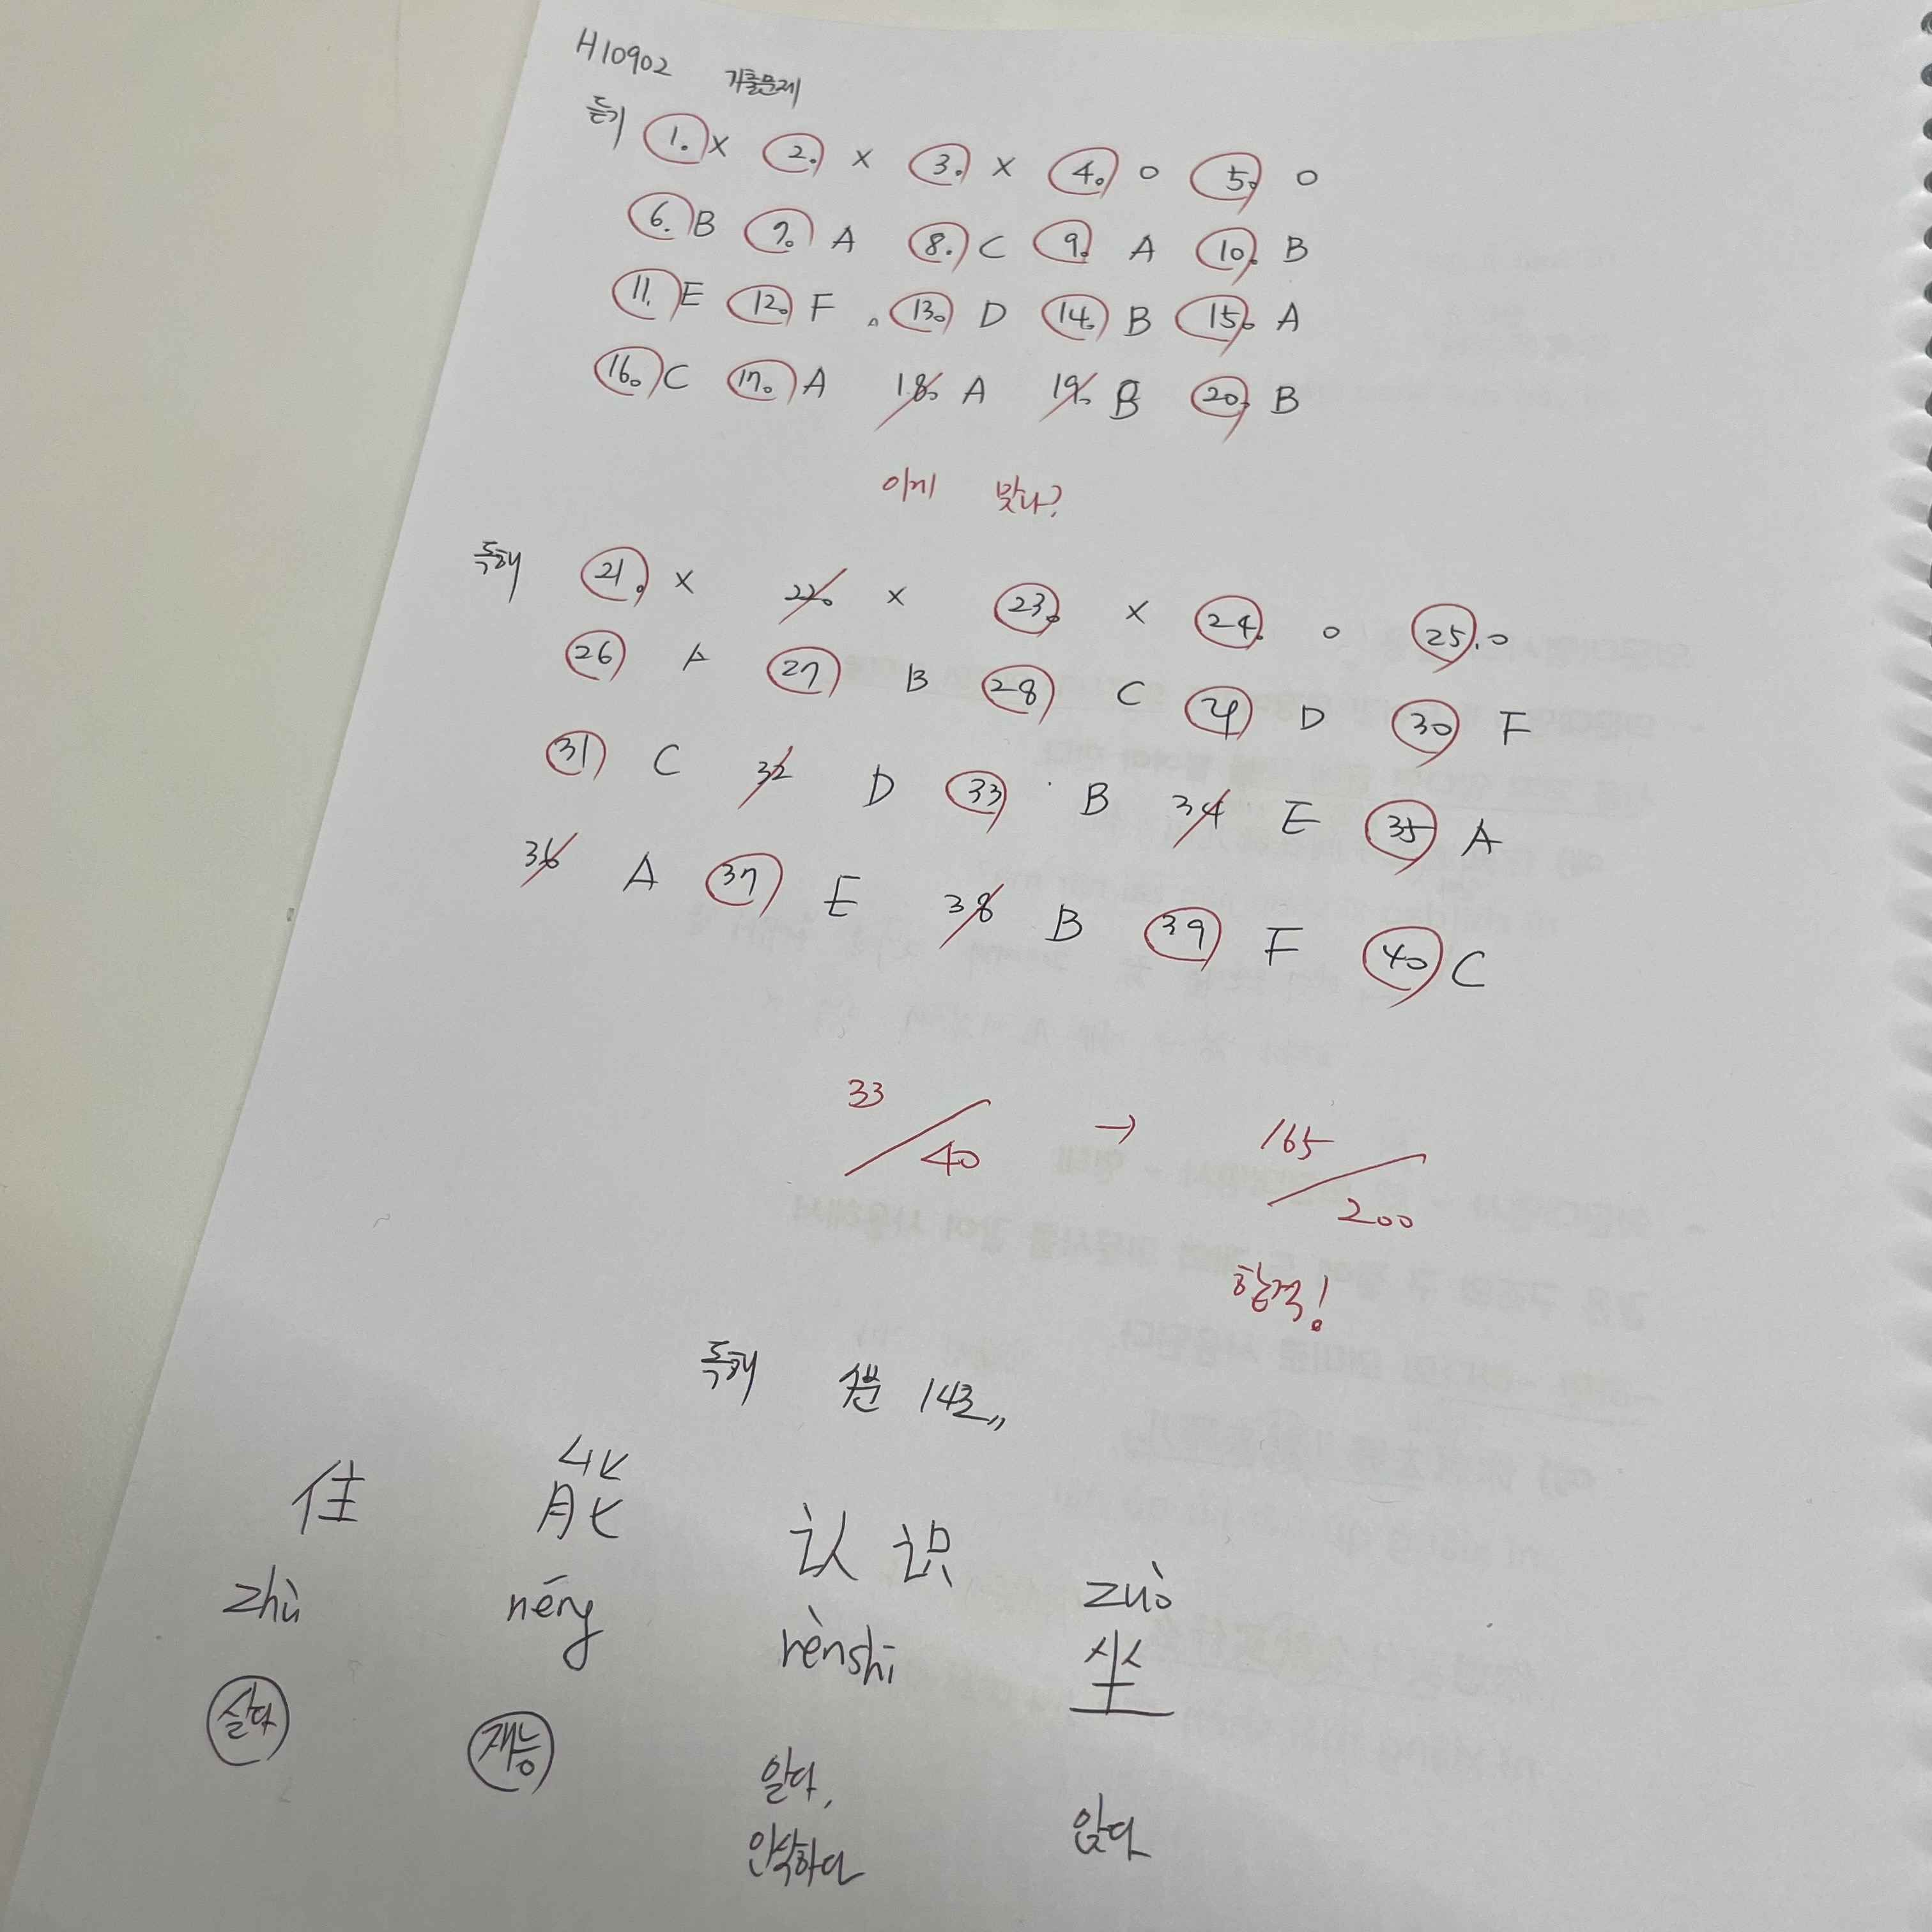 H10902 기출문제
듣기 1. × 2. × 3. × 4. ○ 5. ○
6. B 7. A 8. C 9. A 10. B
11. E 12. F 13. D 14. B 15. A
16. C 17. A 18. A 19. B 20. B
이게 맞나?
독해 21. × 22. × 23. × 24. ○ 25. ○
26 A 27 B 28 C 29 D 30 F
31 C 32 D 33 B 34 E 35 A
36 A 37 E 38 B 39 F 40 C
33/40 → 165/200
합격!
독해 분 14초
住 能 认识 zuò
zhù néng rènshi 坐
살다 재능 알다, 앉다
인식하다